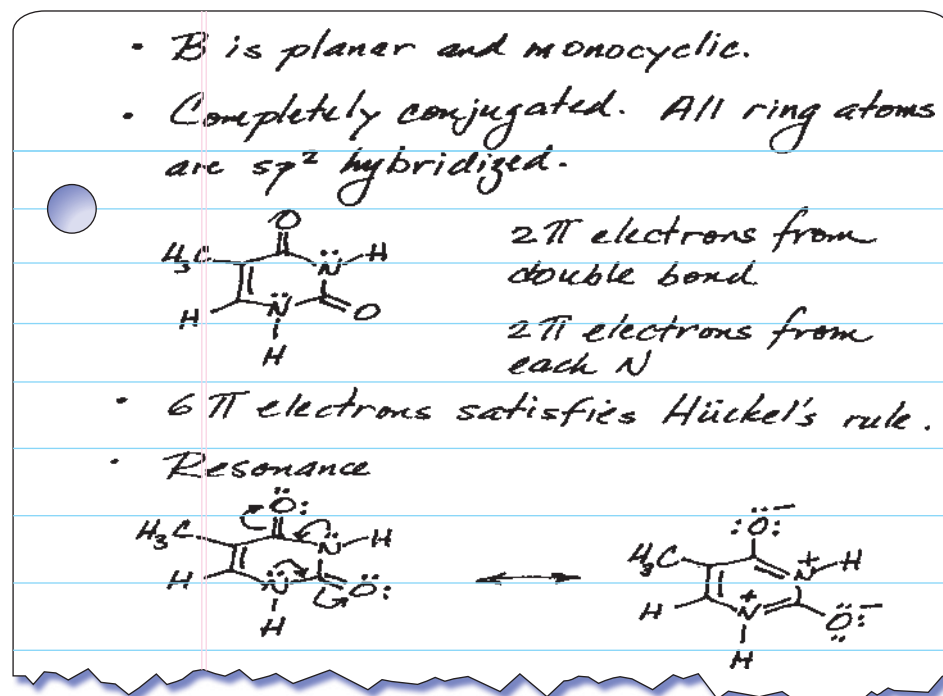 • B is planar and monocyclic.
• Completely conjugated. All ring atoms
are sp² hybridized.
O
H₃C
N̈
H
N̈
O
H
H
2π electrons from
double bond
2π electrons from
each N
• 6π electrons satisfies Hückel's rule.
• Resonance
Ö:
H₃C
N̈
H
H
N̈
Ö:
H
:Ö:⁻
H₃C
N⁺
H
H
N⁺
Ö:⁻
H